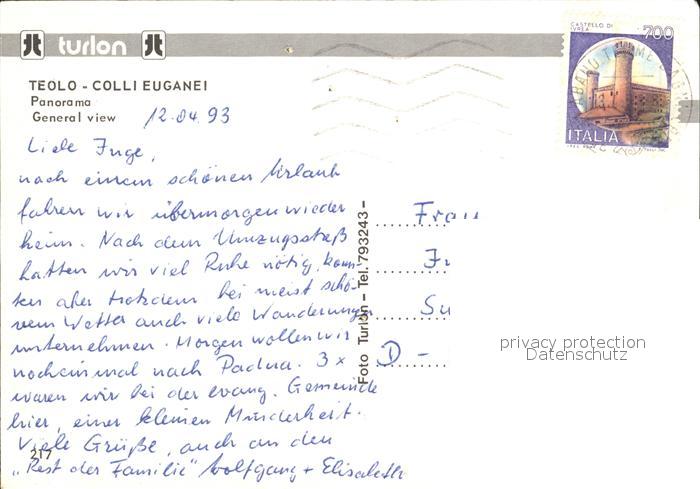 turlon
CASTELLO DI IVREA
700
ITALIA
TEOLO - COLLI EUGANEI
Panorama
General view
12.04.93
Liebe Inge,
nach einem schönen Urlaub
fahren wir übermorgen wieder
heim. Nach dem Umzugsstreß
hatten wir viel Ruhe nötig, konn-
ten aber trotzdem bei meist schö-
nem Wetter auch viele Wanderungen
unternehmen. Morgen wollen wir
nocheinmal nach Padua. 3 x
waren wir bei der evang. Gemeinde
hier, einer kleinen Minderheit.
Viele Grüße, auch an den
„Rest der Familie" Wolfgang + Elisabeth
217
Foto Turlon - Tel. 793243 -
Frau
D -
privacy protection
Datenschutz